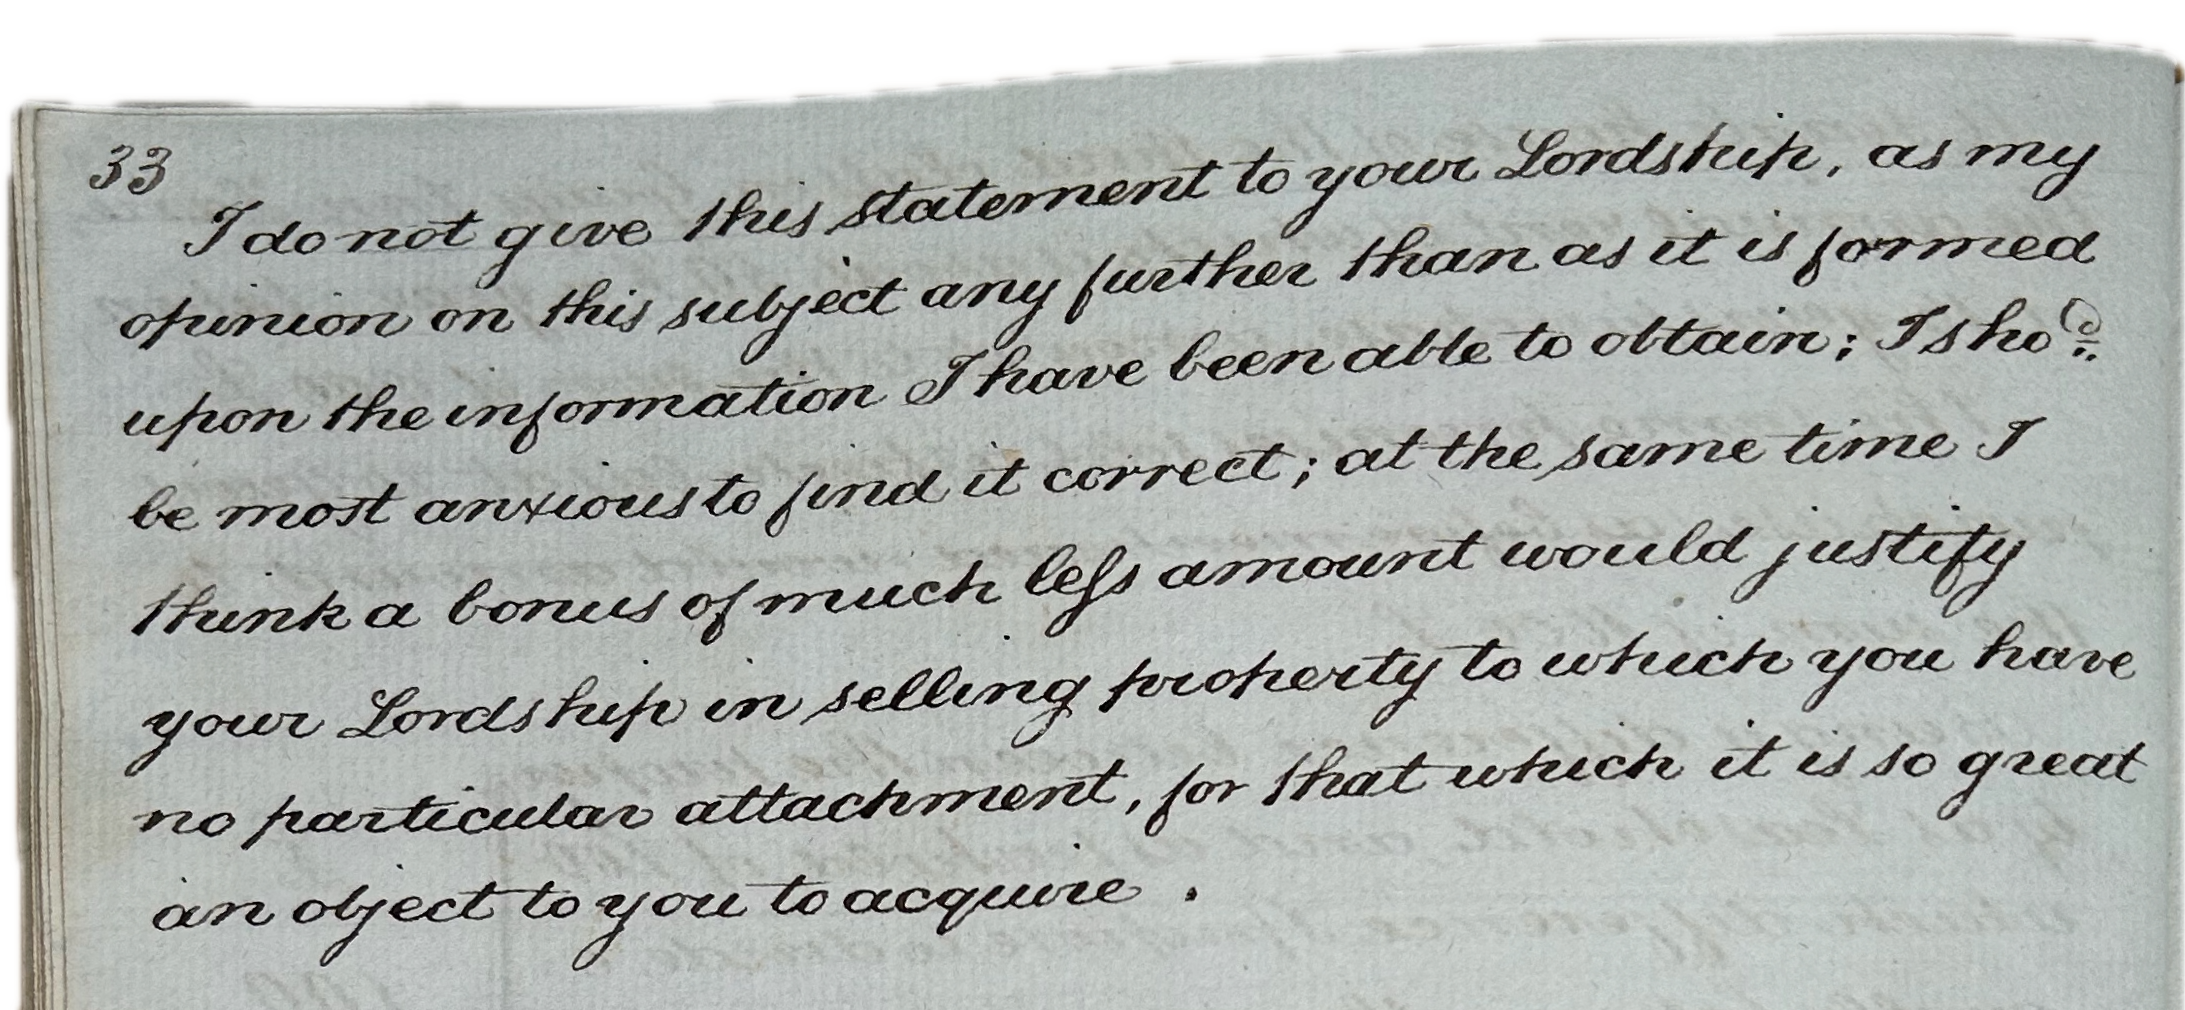 33
I do not give this statement to your Lordship, as my
opinion on this subject any further than as it is formed
upon the information I have been able to obtain; I sho.ᵈ
be most anxious to find it correct; at the same time I
think a bonus of much leſs amount would justify
your Lordship in selling property to which you have
no particular attachment, for that which it is so great
an object to you to acquire .